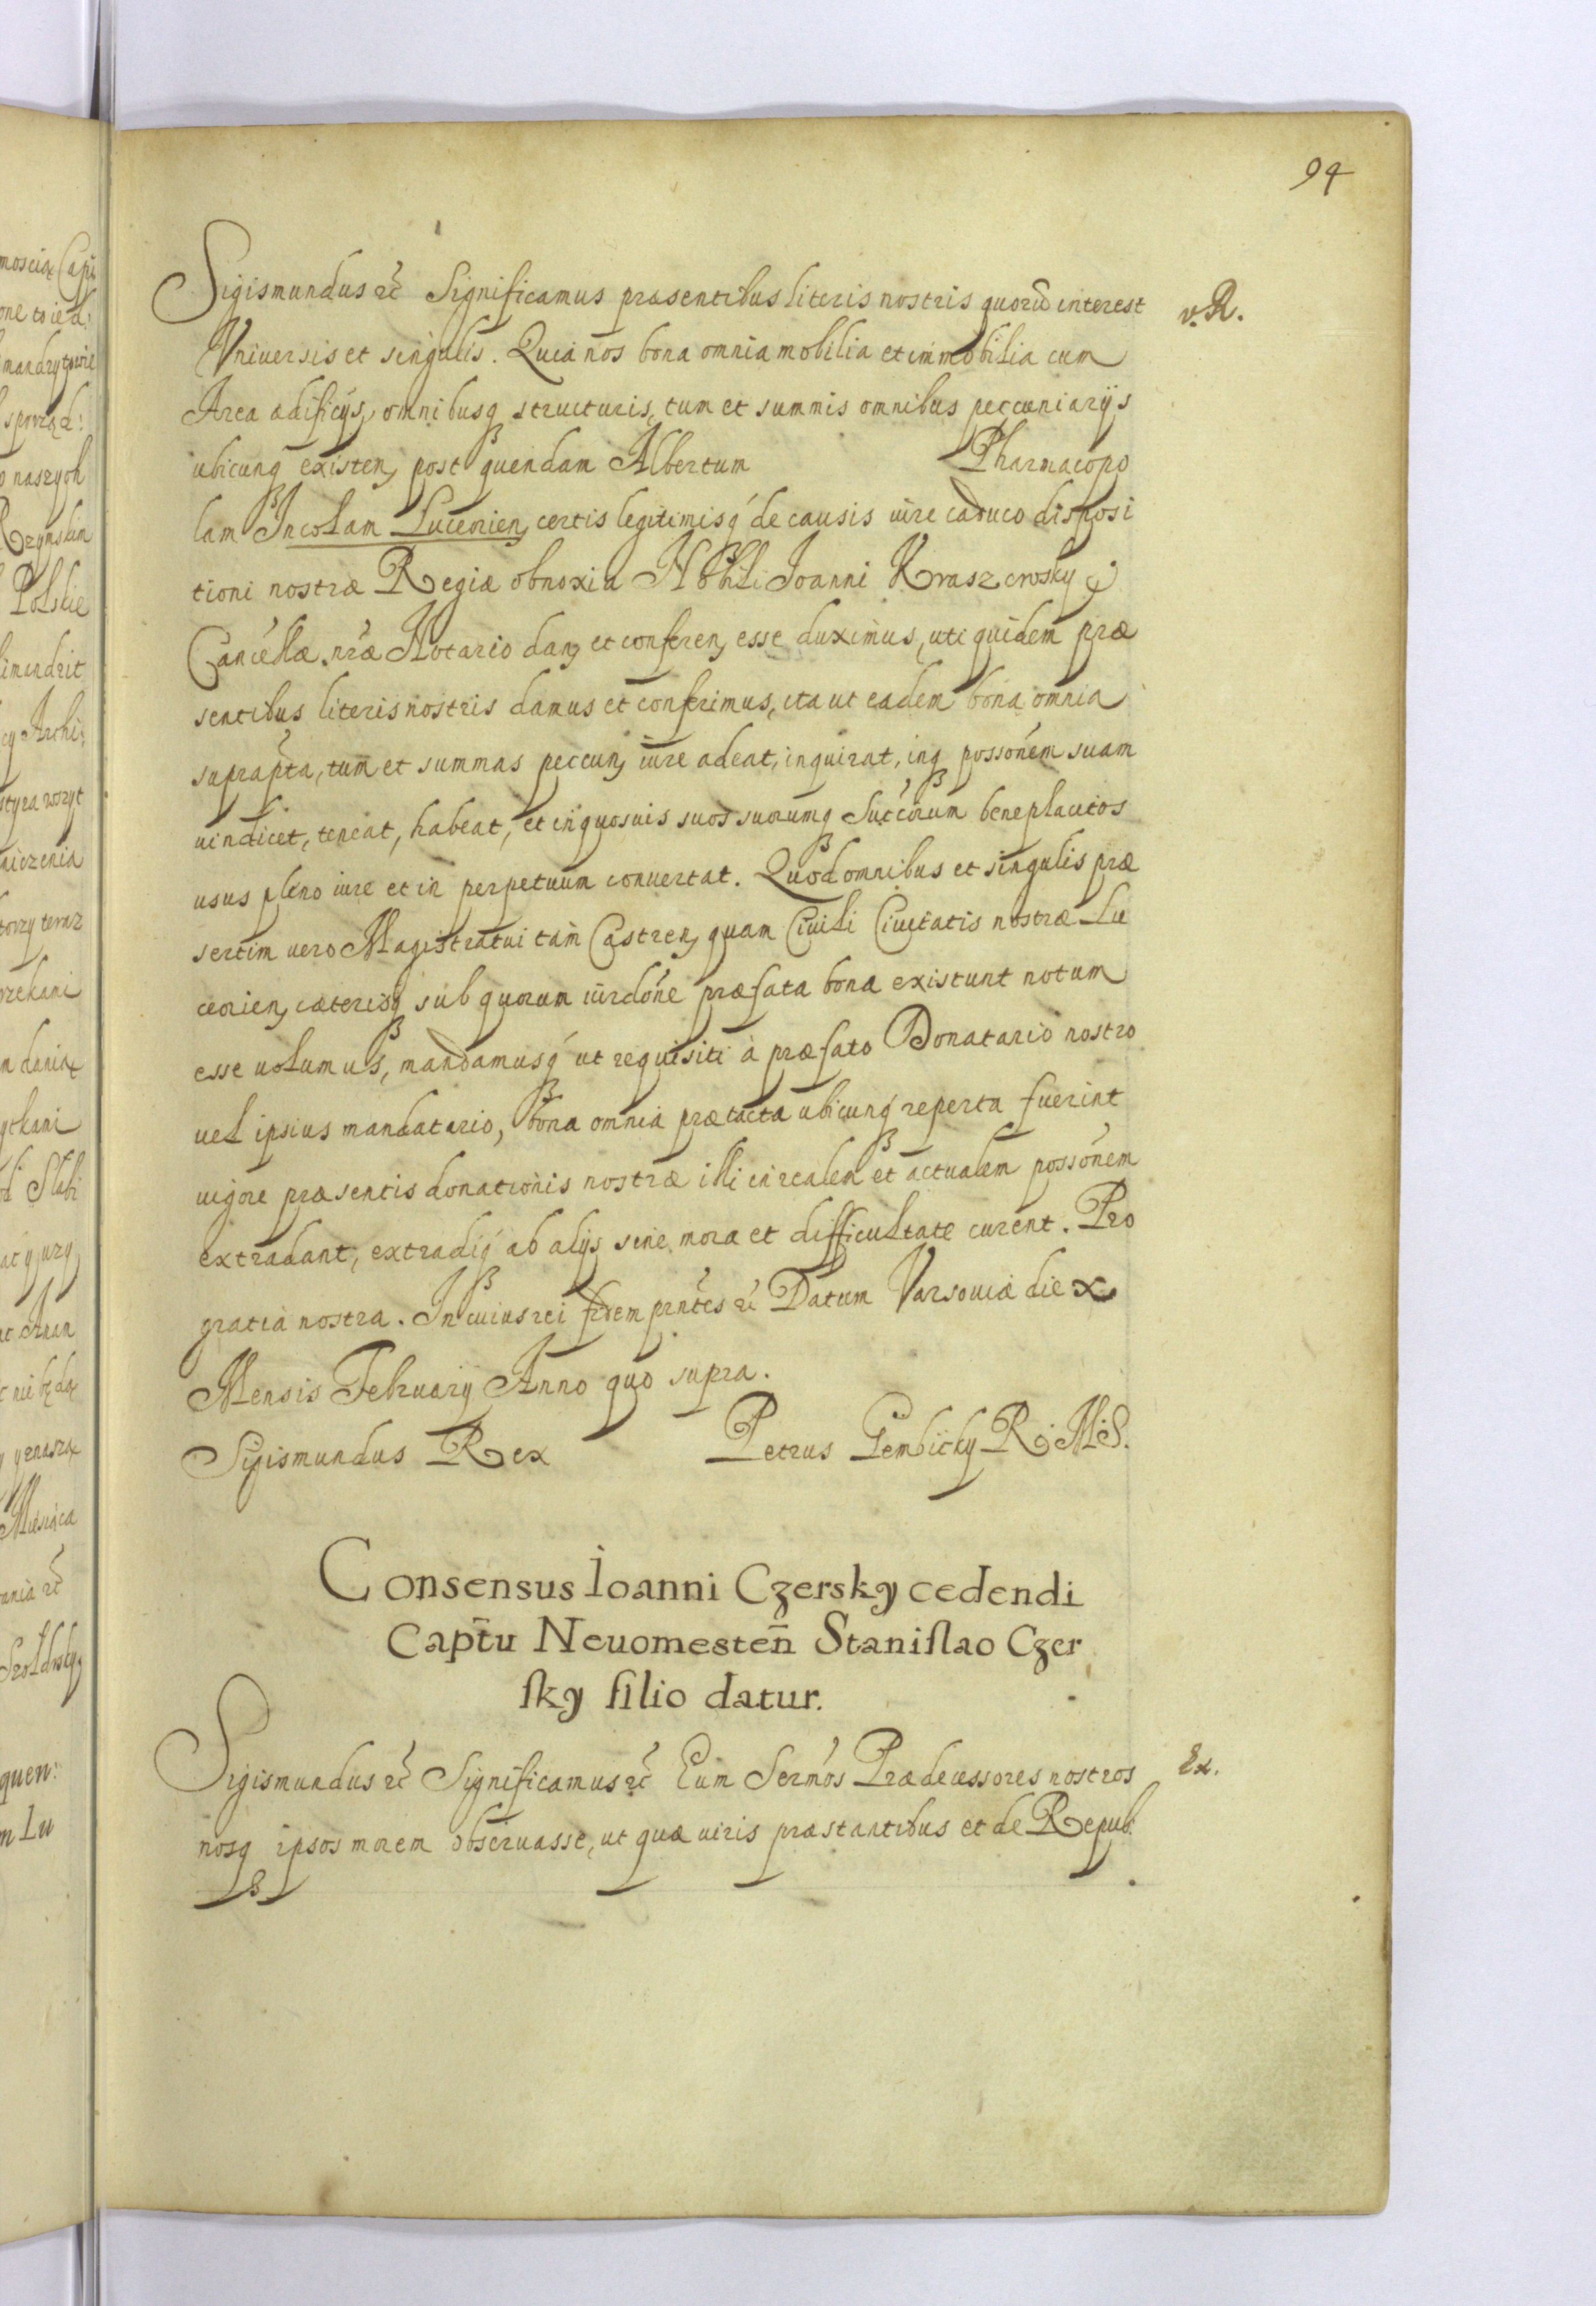 94
Sigismundus etc Significamus præsentibus literis nostris quorũ interest
v. R.
Vniuersis et singulis. Quia nos bona omnia mobilia et immobilia cum
Area ædificijs, omnibusq structuris, tum et summis omnibus peccuniarijs
ubicunq existen, post quendam Albertum Pharmacopo
lam Incolam Luceorien, certis legitimisq de causis iure caduco disposi
tioni nostræ Regiæ obnoxia Nobili Joanni Kraszewsky
Cancellæ nræ Notario dan, et conferen, esse duximus, uti quidem præ
sentibus literis nostris damus et conferimus, ita ut eadem bona omnia
suprapta, tum et summas peccun, iure adeat, inquirat, inq possonem suam
uindicet, teneat, habeat, et in quosuis suos suorumq Succorum beneplacitos
usus pleno iure et in perpetuum conuertat. Quod omnibus et singulis præ
sertim uero Magistratui tam Castren, quam Ciuili Ciuitatis nostræ Lu
ceorien, cæterisq sub quorum iurdone præfata bona existunt notum
esse uolumus, mandamusq ut requisiti à præfato Donatario nostro
uel ipsius mandatario, bona omnia prætacta ubicunq reperta fuerint
uigore præsentis donationis nostræ illi in realem et actualem possonem
extradant, extradiq ab alijs sine mora et difficultate curent. Pro
gratia nostra. In cuius rei fidem prntes etc Datum Varsouiæ die X
Mensis February Anno quo supra.
Sigismundus Rex Petrus Gembicky R. M. S.
Consensus Ioanni Czersky cedendi
Captu Neuomesten Stanislao Czer
sky filio datur.
Sigismundus etc Significamus etc Eum Sermos Prædecessores nostros
Ex.
nosq ipsos morem obseruasse, ut quæ uiris præstantibus et de Repub: